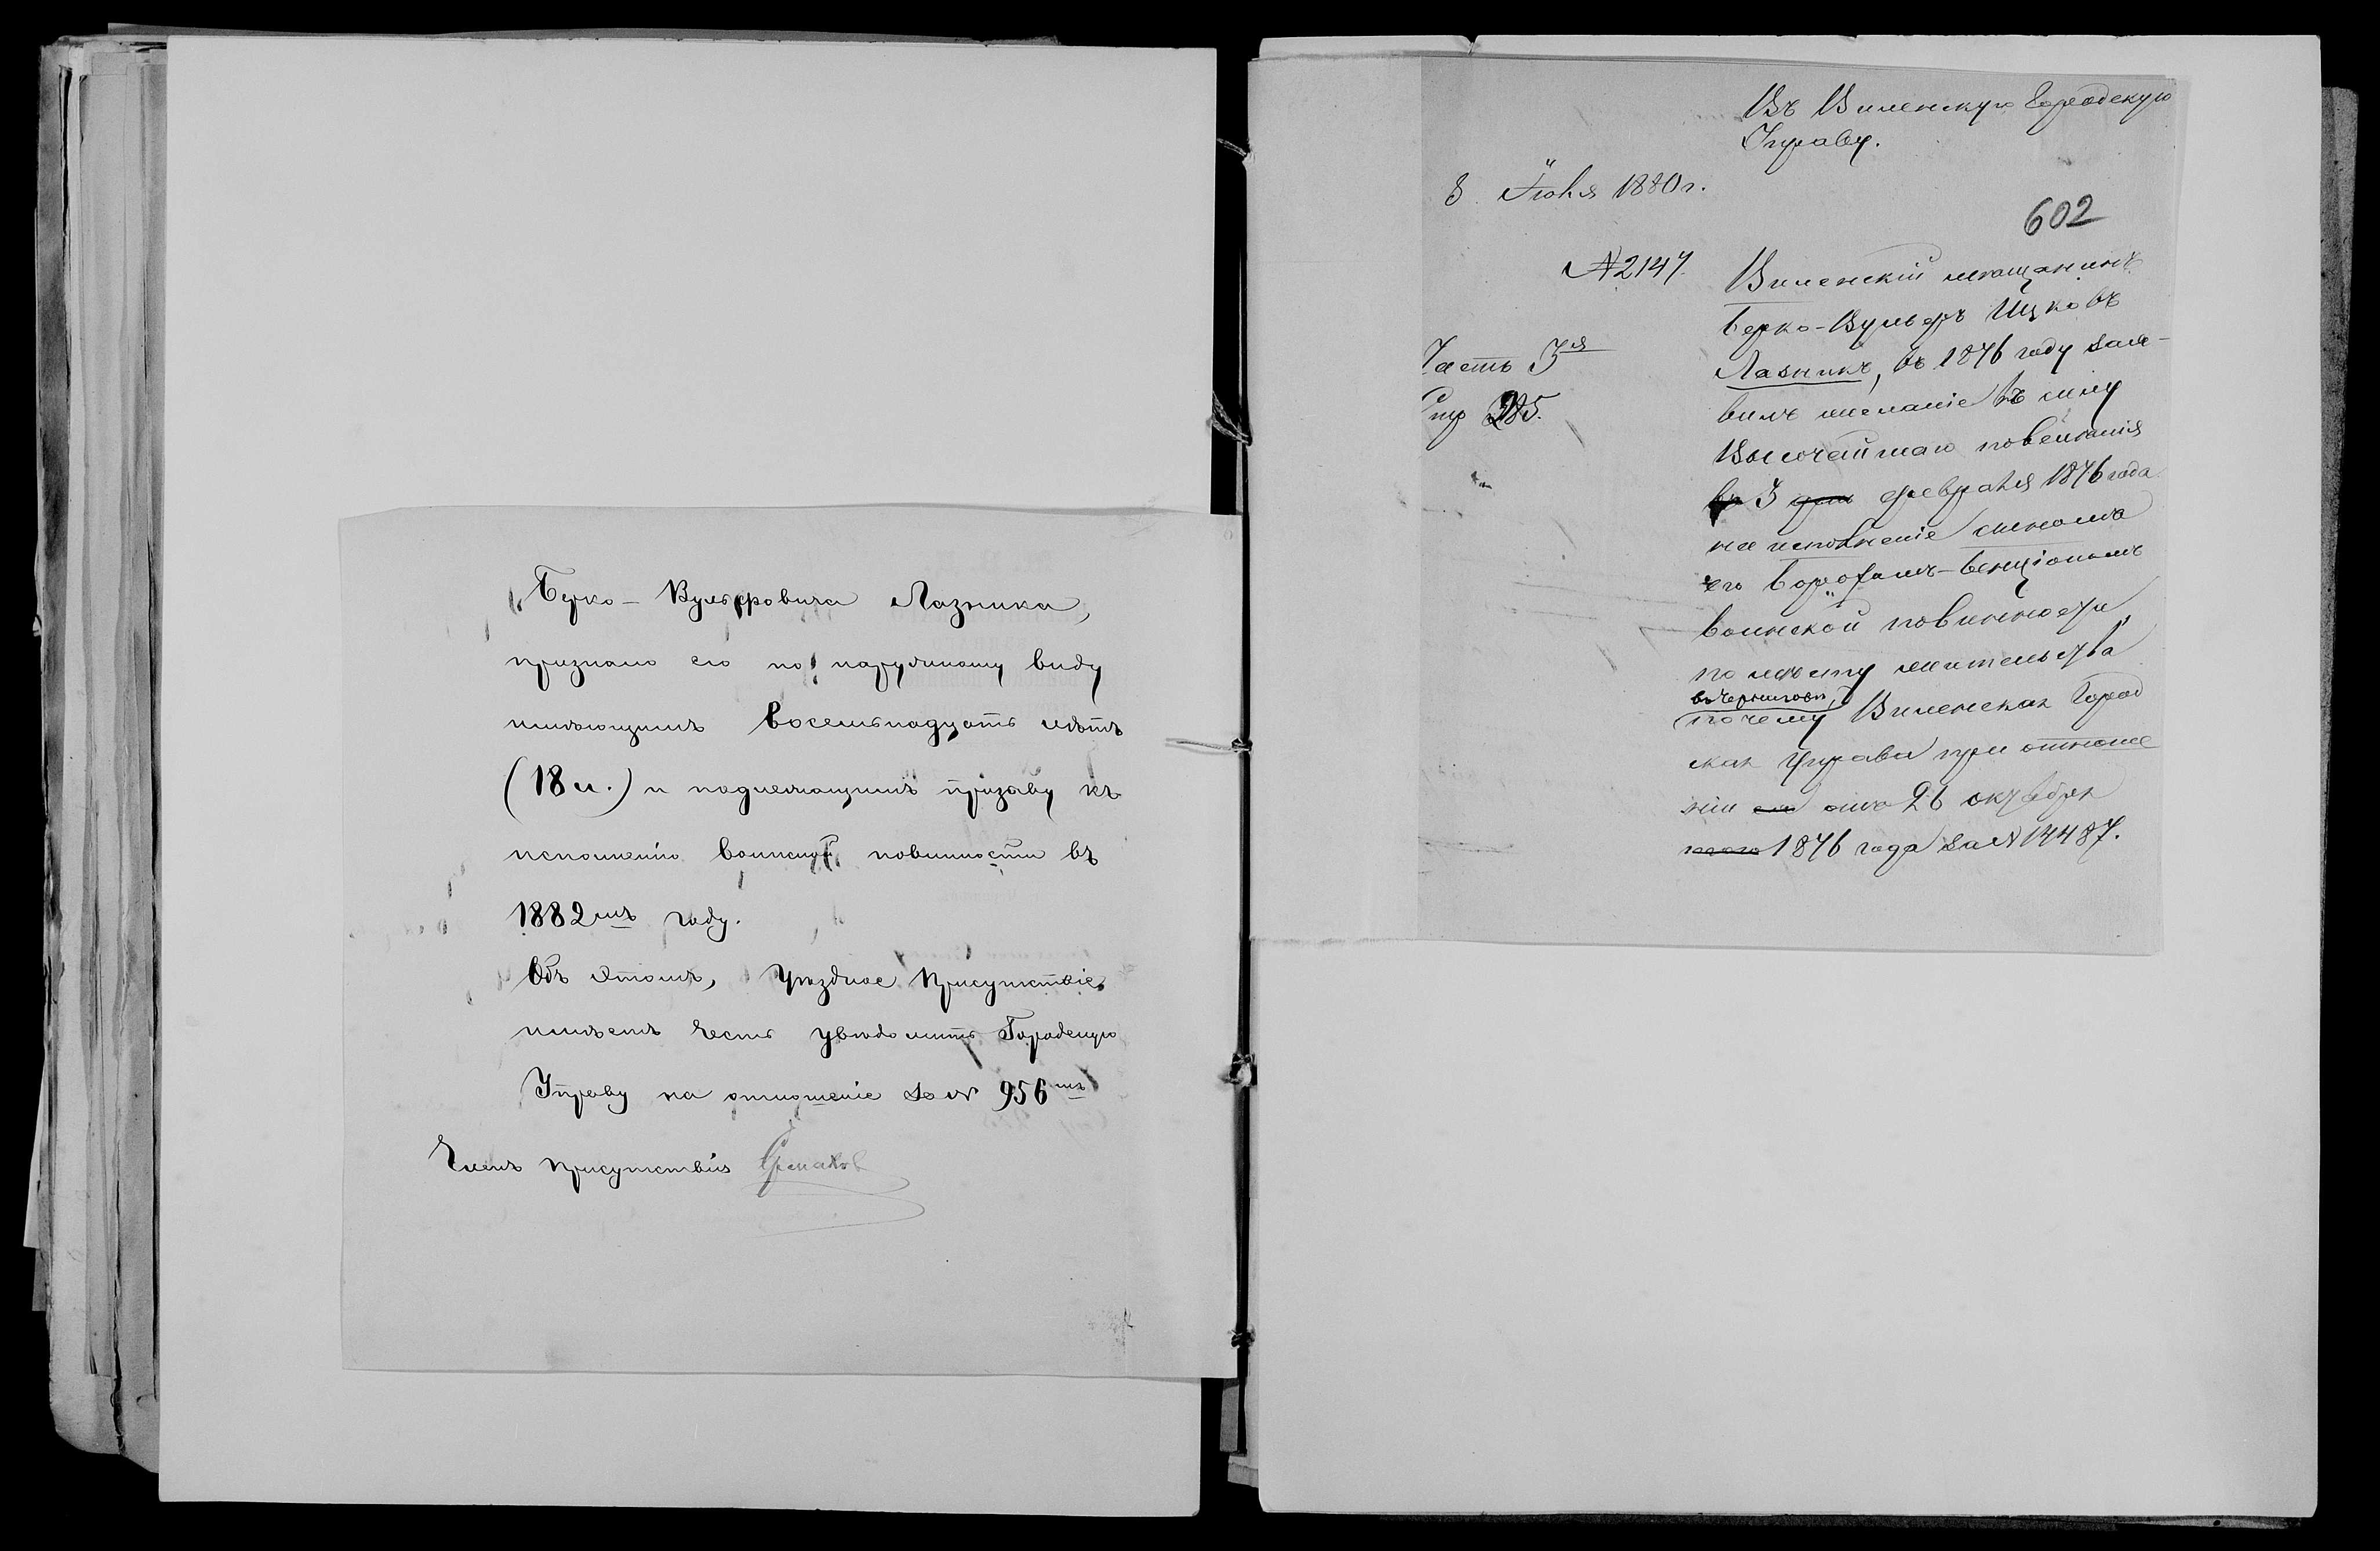 Берко-Вульфовича Лазника,
признало его по наружному виду
имѣющимъ восемьнадцать лѣтъ
(18 л.) и подлежащимъ призыву къ
исполненію воинской повинности въ
1882мъ году.
Объ этомъ, Уѣздное Присутствіе
имѣетъ честь увѣдомить Городскую
Управу на отношеніе за № 956мъ
Членъ Присутствія
Въ Виленскую Городскую
Управу.
3 Іюня 1880 г.
602
№ 2147.
Виленскій мѣщанинъ
Берко-Вульфъ Ицковъ
Часть 3я
Лазникъ, въ 1876 году заяв-
Стр 285.
вилъ желаніе въ силу
Высочайшаго повелѣнія
въ 3 день февраля 1876 года
на исполненіе сыномъ
его
воинской повинности
по мѣсту жительства
въ Черниговѣ,
почему Виленская Город
ская Управа при отноше
ніи отъ 26 октября
того 1876 года за № 14487.